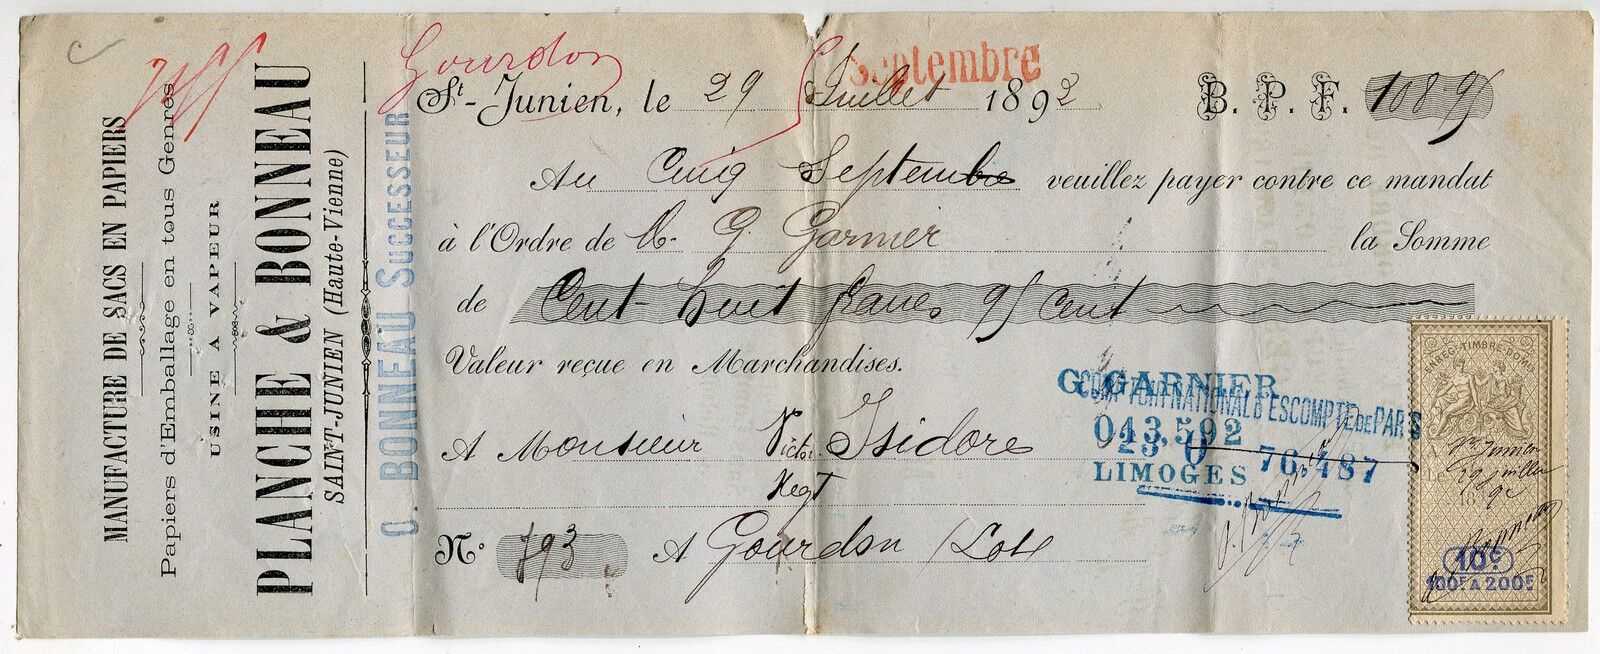 MANUFACTURE DE SACS EN PAPIERS
Papiers d'Emballage en tous Genres
USINE A VAPEUR
PLANCHE & BONNEAU
SAINT-JUNIEN (Haute-Vienne)
O. BONNEAU SUCCESSEUR
Gourdon
Septembre
St-Junien, le 29 Juillet 1892 B. P. F. 108 95
Au Cinq Septembre veuillez payer contre ce mandat
à l'Ordre de M. G. Garnier la Somme
de Cent huit francs 95 cent
Valeur reçue en Marchandises.
G. GARNIER
COMPTOIR NATIONAL D'ESCOMPTE DE PARIS
013,592
76,487
LIMOGES
A Monsieur Victor Isidore
Negt
No 793 A Gourdon (Lot)
ENREG. TIMBRE. DOM.
St Junien
29 juillet
92
10c
100F A 200F